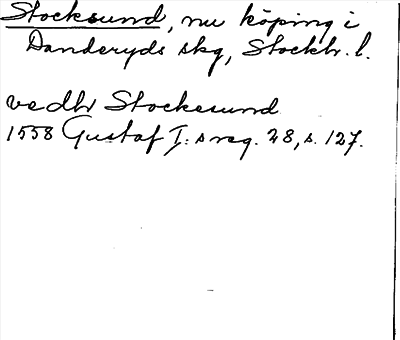 Stocksund, nu köping i
Danderyds skg, Stockh. l.
vedhr Stockesund
1558 Gustaf I: s reg. 28, s. 127.